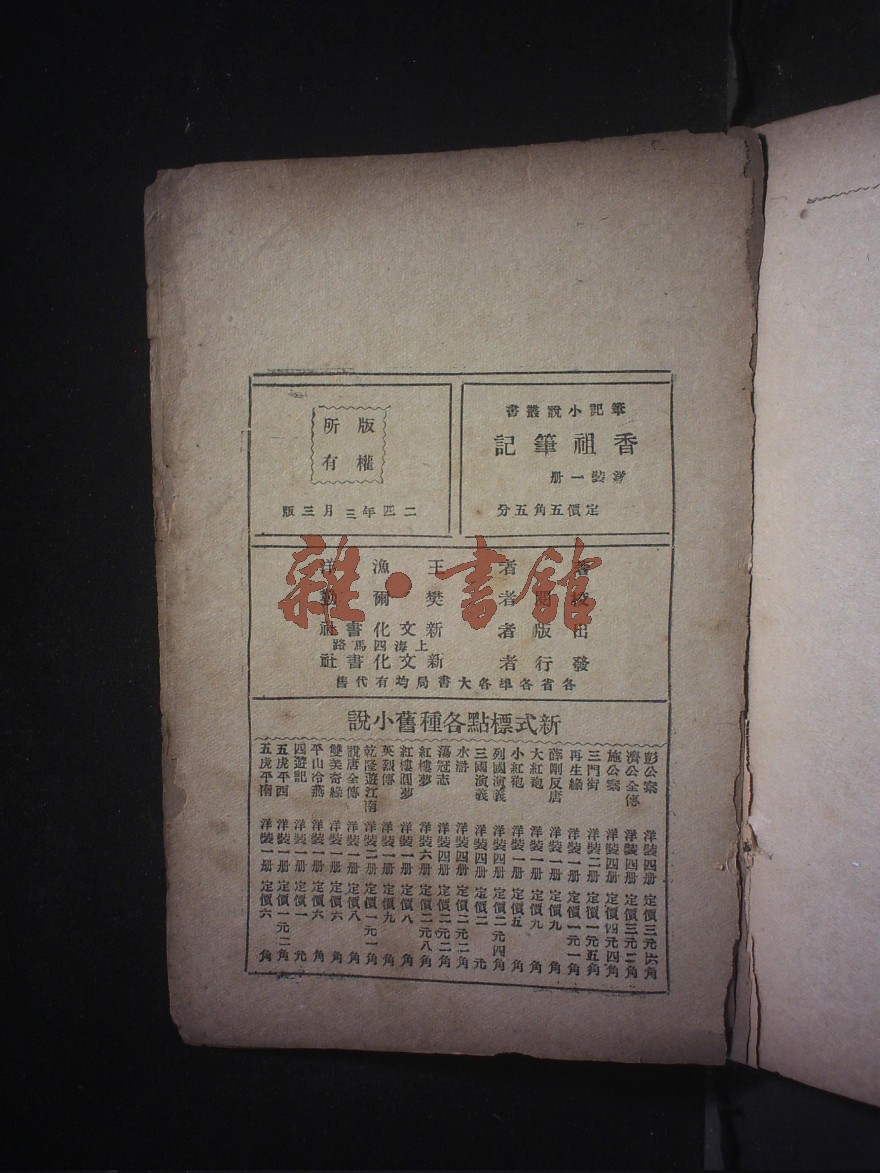 筆記小說叢書
香祖筆記
洋裝一册
定價五角五分
版權
所有
二四年三月三版
著者 王漁洋
校閱者 樊爾勤
出版者 新文化書社
上海四馬路
發行者 新文化書社
各省各埠各大書局均有代售
新式標點各種舊小說
彭公案 洋裝四册 定價三元六角
濟公全傳 洋裝四册 定價三元二角
施公案 洋裝四册 定價四元四角
三門街 洋裝二册 定價一元五角
再生緣 洋裝一册 定價一元一角
薛剛反唐 洋裝一册 定價九角
大紅袍 洋裝一册 定價九角
小紅袍 洋裝一册 定價五角
列國演義 洋裝四册 定價二元四角
三國演義 洋裝四册 定價二元
水滸 洋裝四册 定價二元二角
蕩冠志 洋裝四册 定價二元二角
紅樓夢 洋裝六册 定價二元八角
紅樓圓夢 洋裝一册 定價八角
英烈傳 洋裝一册 定價九角
乾隆遊江南 洋裝二册 定價一元一角
說唐全傳 洋裝一册 定價八角
雙美奇緣 洋裝一册 定價六角
平山冷燕 洋裝一册 定價六角
四遊記 洋裝一册 定價一元
五虎平西 洋裝一册 定價一元二角
五虎平南 洋裝一册 定價六角
雜·書館